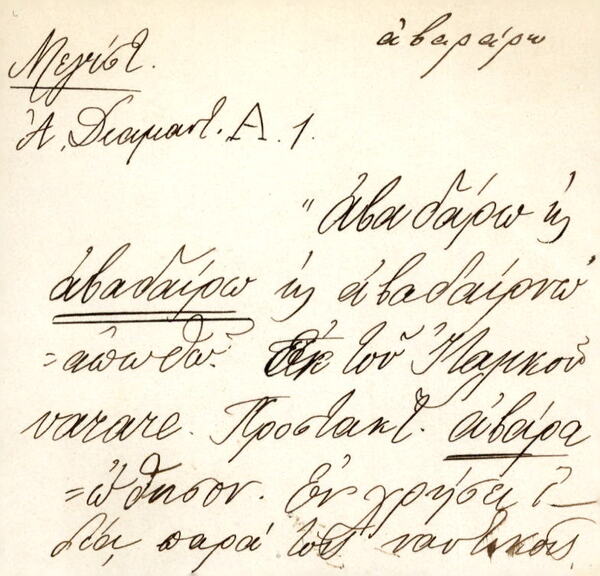 ἀβαράρω
Μεγίστ.
Ἀ. Διαμαντ. Α. 1.
"ἀβαδάρω ἢ
ἀβαδαίρω ἢ ἀβαδαίρνω
=ἀπωθῶ. Ἐκ τοῦ Ἰταλικοῦ
varare. Προστακτ. ἀβάρα
=ὤθησον. Ἐν χρήσει ἰ-
δίᾳ παρὰ τοῖς ναυτικοῖς.